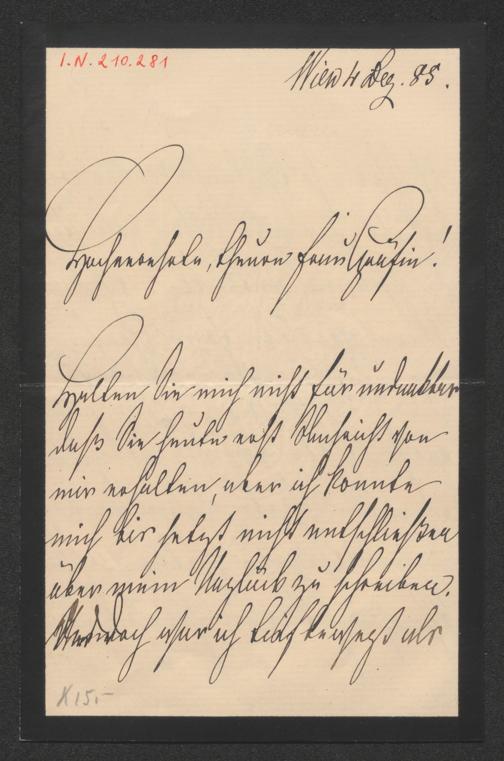 I.N. 210.281
Wien 4 Dez. 85.
Hochverehrte, theure Frau Gräfin!
Halten Sie mich nicht für undankbar
daß Sie heute erst Nachricht von
mir erhalten, aber ich konnte
mich bis jetzt nicht entschließen
über mein Unglück zu schreiben.
war ich tief bewegt als
K 15.-